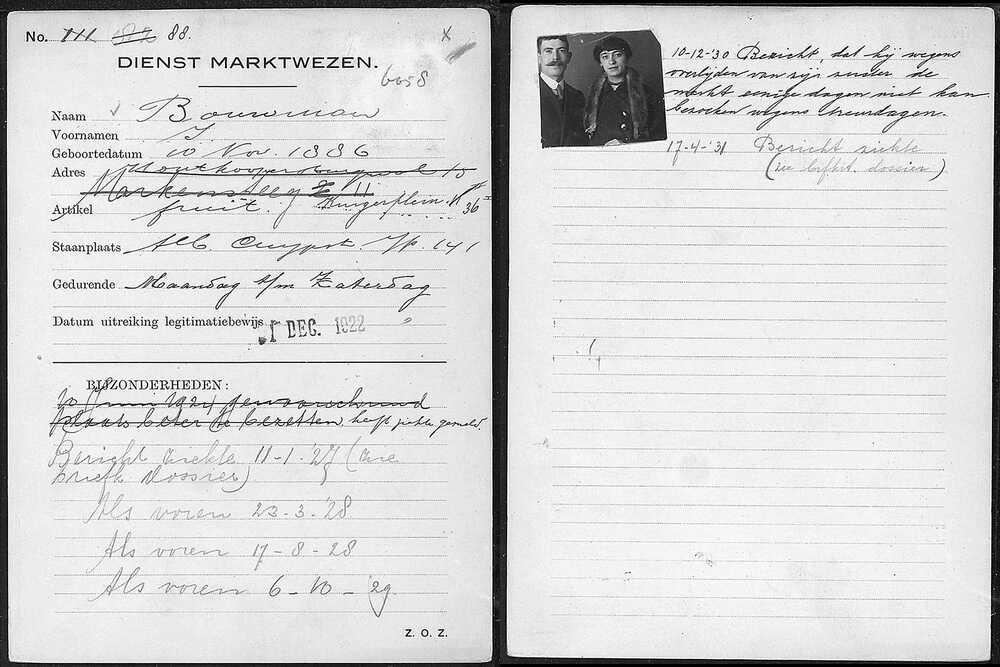 No. 111 187 88.
DIENST MARKTWEZEN.
6058
Naam Bouwman
Voornamen I
Geboortedatum 10 Nov. 1886
Adres Houtkoopersburgwal 15
Markensteeg 11
Artikel fruit. 36
Staanplaats Alb. Cuypst. 141
Gedurende Maandag t/m Zaterdag
Datum uitreiking legitimatiebewijs 1 DEC. 1922
BIJZONDERHEDEN:
10 Juni 1924 gewaarschuwd
plaats beter te bezetten heeft ziekte gemeld.
Bericht ziekte 11-1-'27 (zie
brief dossier)
Als voren 23-3-'28
Als voren 17-8-28
Als voren 6-10-'29
Z. O. Z.
10-12-'30 Bericht, dat hij wegens
overlijden van zijn zuster de
markt eenige dagen niet kan
bezoeken wegens treurdagen.
17-4-'31 Bericht ziekte
(zie dossier)